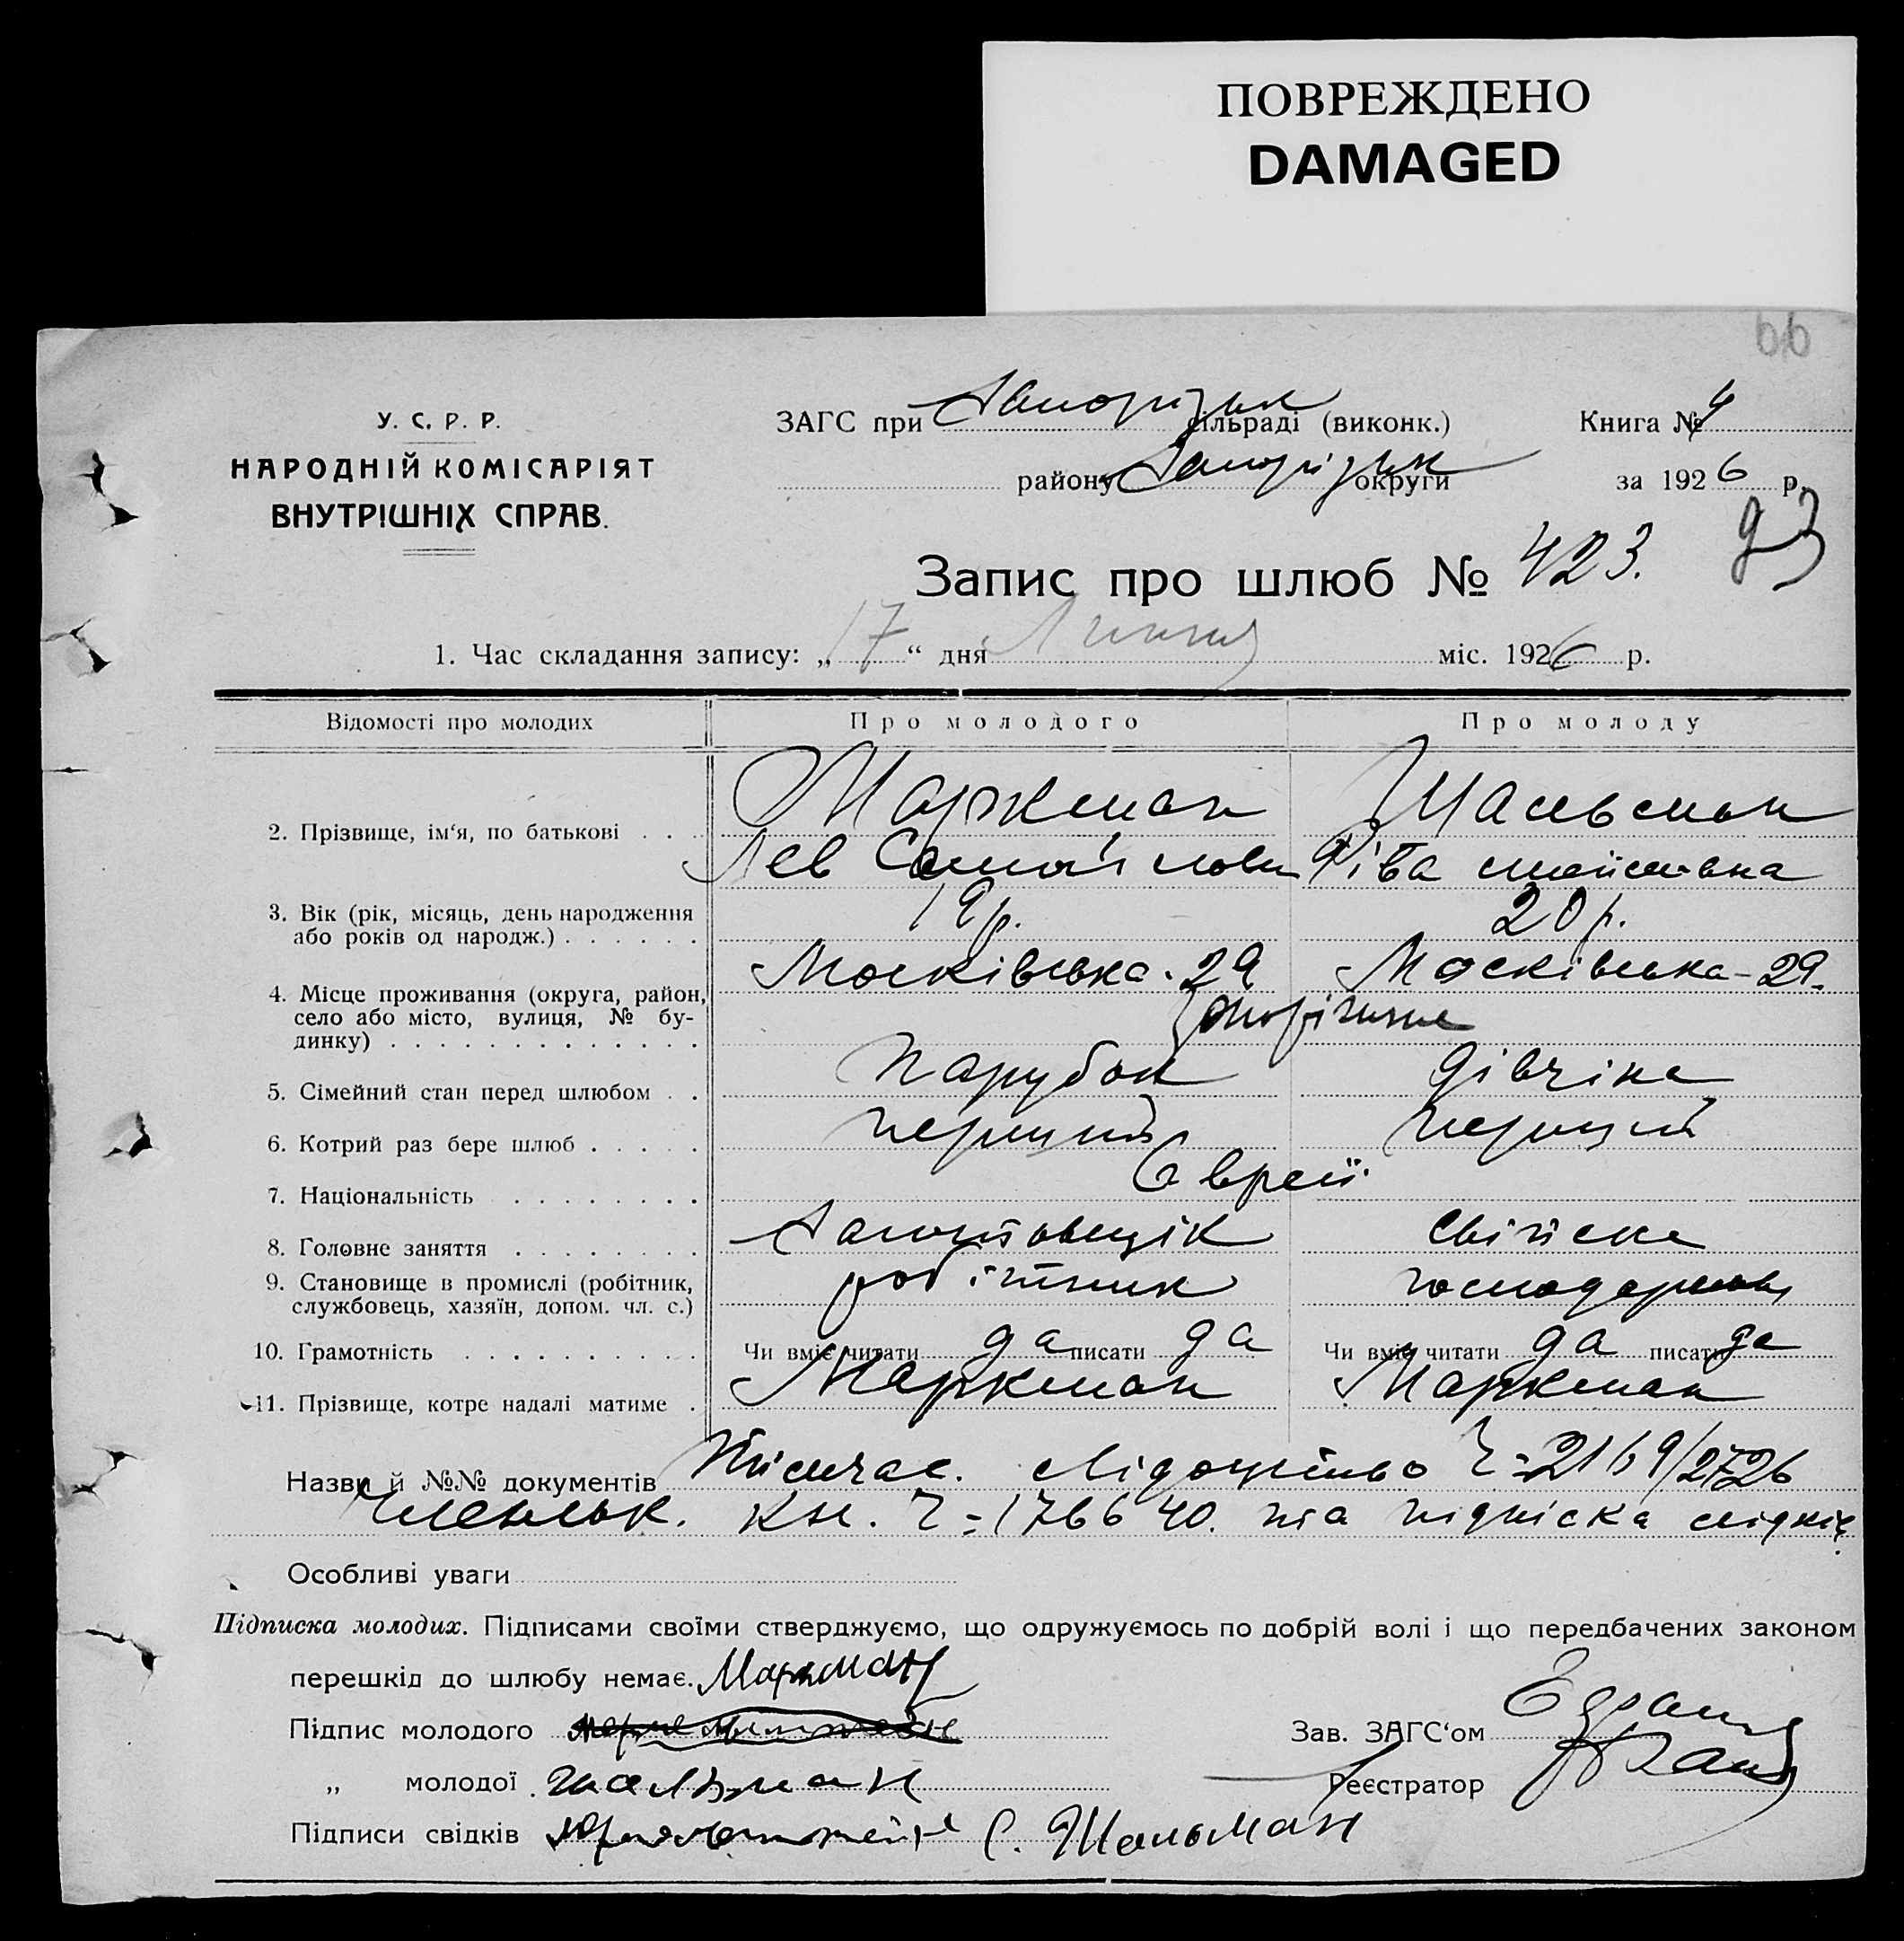 ПОВРЕЖДЕНО
DAMAGED
66
У. С. Р. Р.
НАРОДНІЙ КОМІСАРІЯТ
ВНУТРІШНІХ СПРАВ.
ЗАГС при Запорізьк сільраді (виконк.) Книга № 4
району Запорізьк округи за 1926 р.
Запис про шлюб № 423.
1. Час складання запису: „17“ дня Липня міс. 1926 р.
Відомості про молодих Про молодого Про молоду
2. Прізвище, ім‘я, по батькові . . . Маркман Шальман
Лев Ріва
3. Вік (рік, місяць, день народження 19р. 20р.
або років од народж.) . . . . . .
4. Місце проживання (округа, район, Московська - 29 Московська - 29.
село або місто, вулиця, № бу-
динку) . . . . . . . . . . . . . Запоріжжє
5. Сімейний стан перед шлюбом . . Парубок дівчіна
6. Котрий раз бере шлюб . . . . . перший перший
7. Національність . . . . . . . . Євреї
8. Головне заняття . . . . . . . . свійске
9. Становище в промислі (робітник, робітник
службовець, хазяїн, допом. чл. с.)
10. Грамотність . . . . . . . . . . Чи вміє читати да писати да Чи вміє читати да писати да
11. Прізвище, котре надалі матиме . Маркман Маркман
Назви й №№ документів Тимчас. свідоцтво Ч=2169/2726
Членськ. кн. Ч=176640. та підпіска свідків
Особливі уваги
Підписка молодих. Підписами своїми стверджуємо, що одружуємось по добрій волі і що передбачених законом
перешкід до шлюбу немає. Маркман
Підпис молодого Зав. ЗАГС‘ом
„ молодої Шальман Реєстратор
Підписи свідків С. Шальман